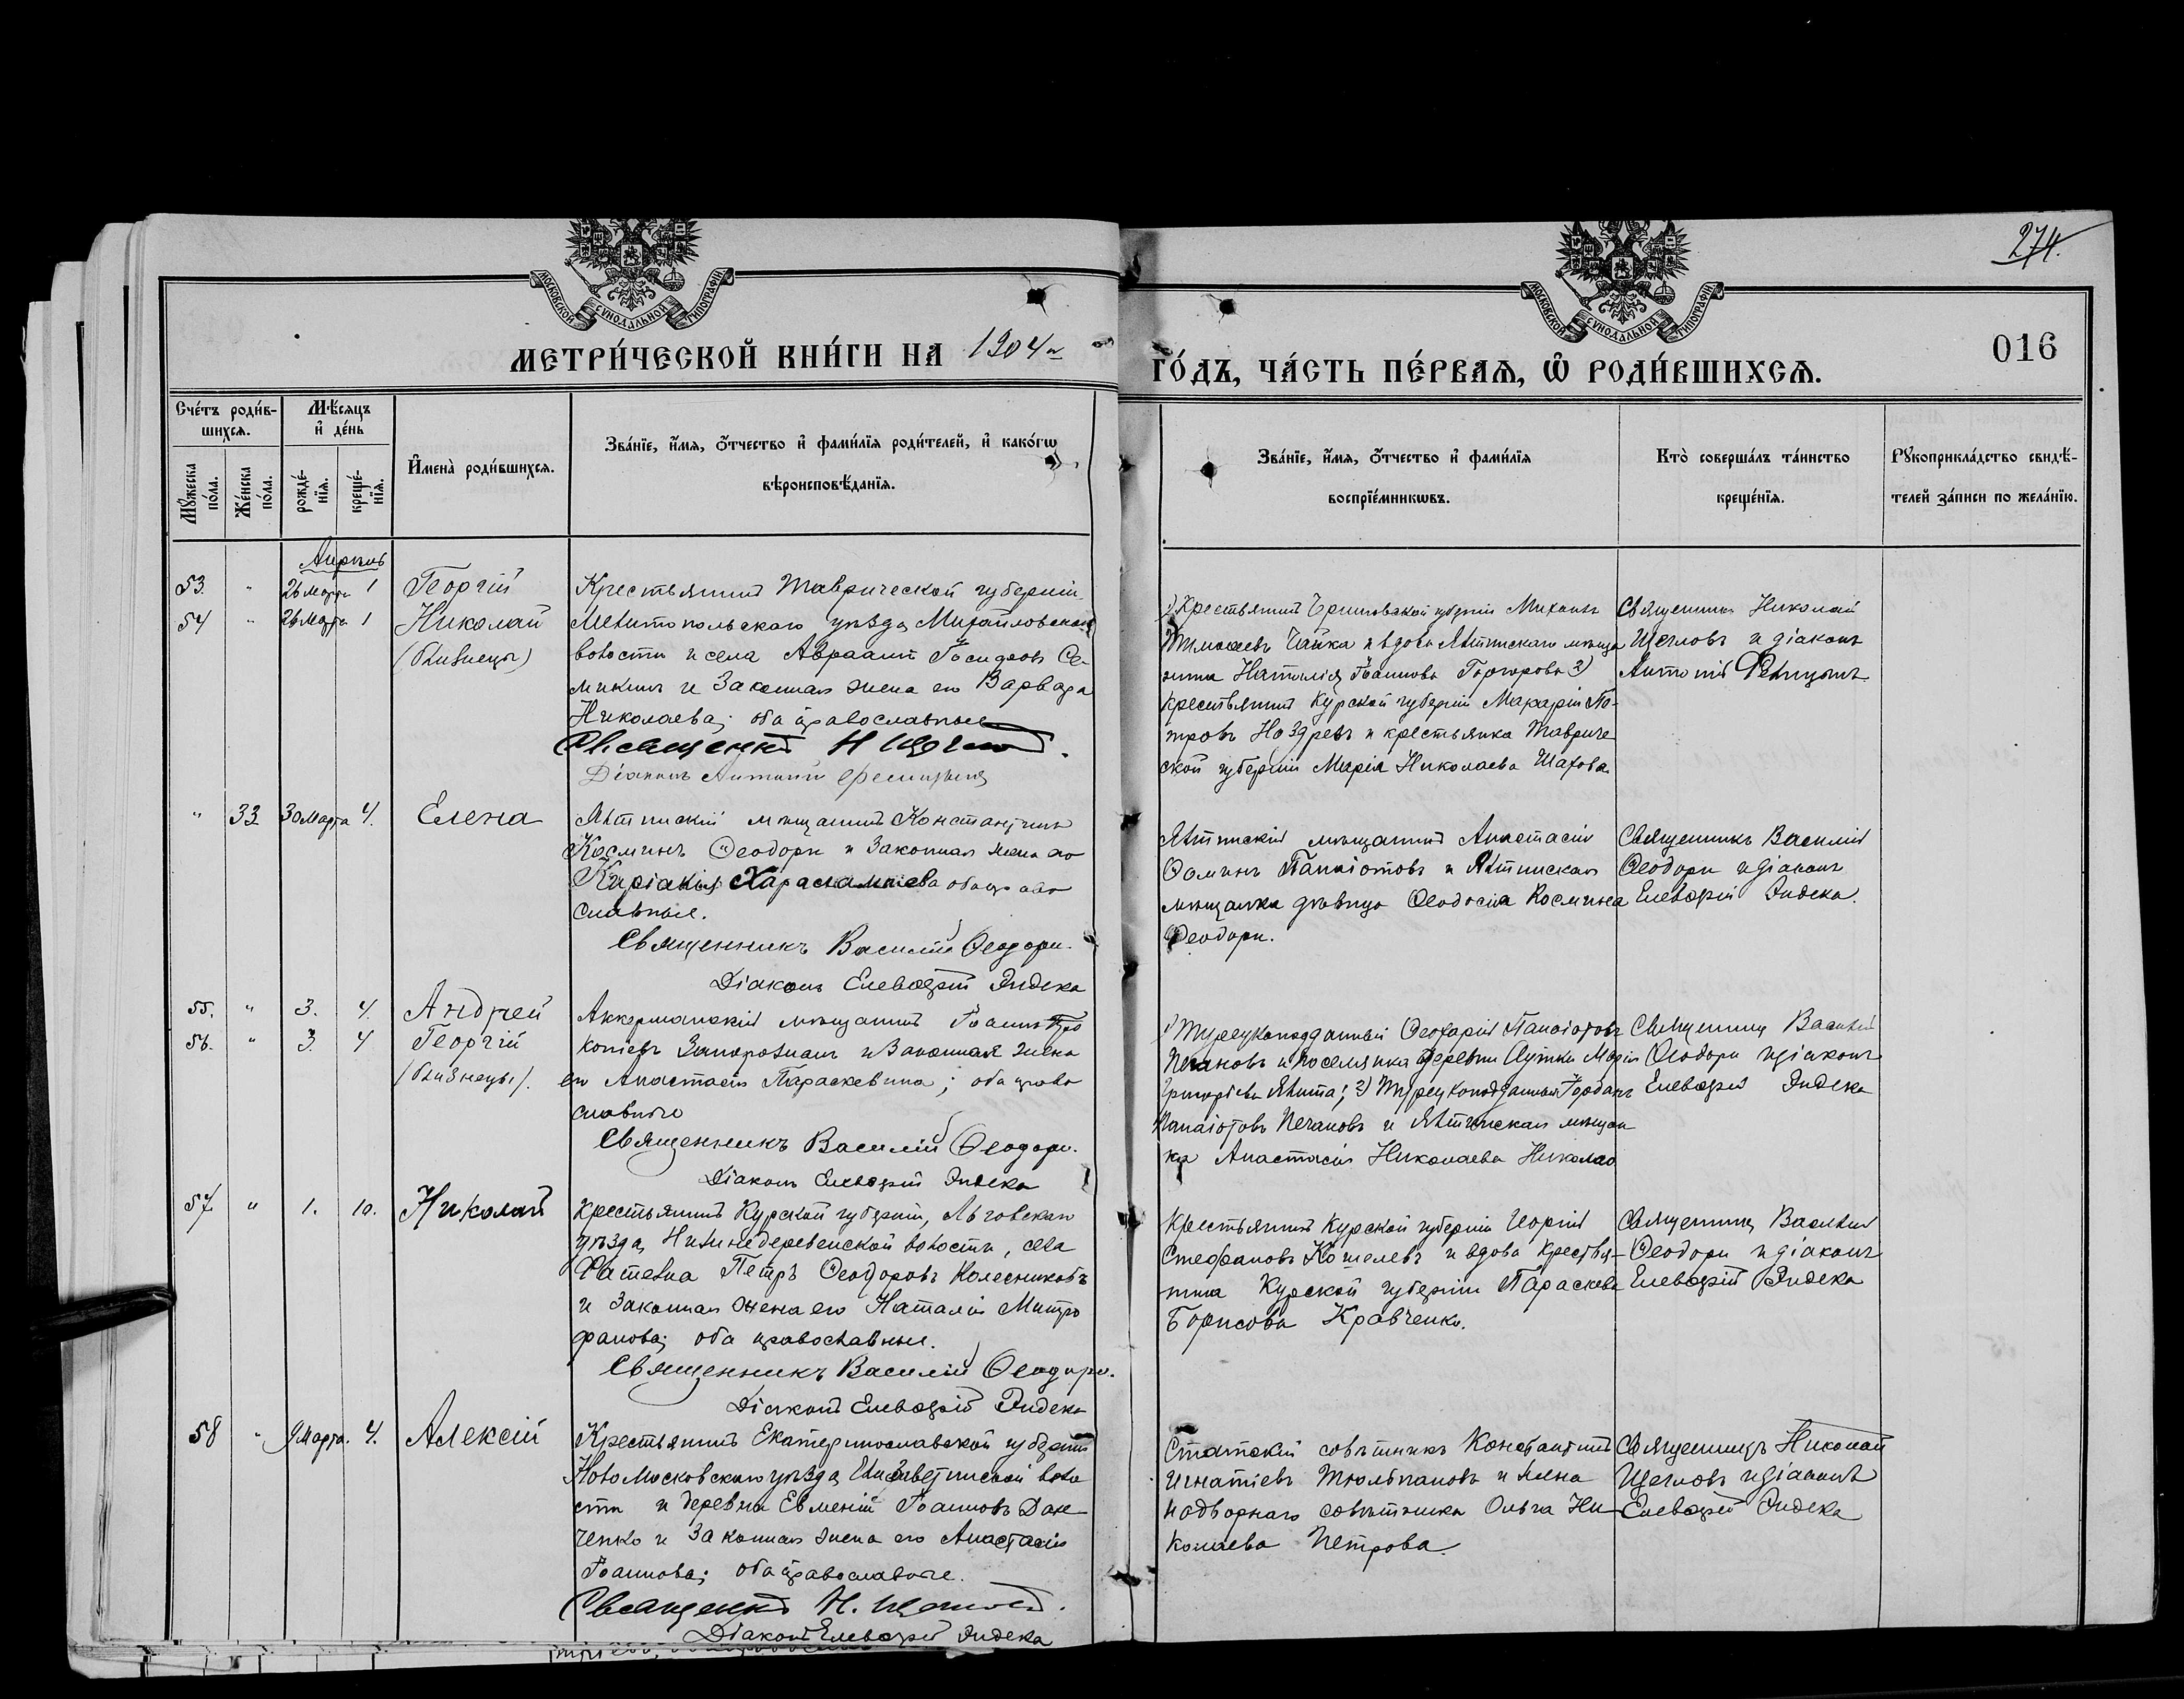 274.
016
МОСКОВСКОЙ СѴНОДАЛЬНОЙ ТИПОГРАФІИ
МОСКОВСКОЙ СѴНОДАЛЬНОЙ ТИПОГРАФІИ
МЕТРИ́ЧЕСКОЙ КНИ́ГИ НА 1904 й
ГО́ДЪ, ЧА́СТЬ ПЕ́РВАЯ, Ѡ РОДИ́ВШИХСЯ.
Сче́тъ роди́в-
шихся.
Мꙋ́жеска по́ла.
Же́нска по́ла.
Мѣ́сяцъ
и҆ де́нь
рожде́-
нїя.
креще́-
нїя.
И҆мена̀ роди́вшихся.
Зва́нїе, и҆́мя, о҆́тчество и҆ фами́лїя роди́телей, и҆ како́гѡ
вѣроисповѣ́данїя.
Зва́нїе, и҆́мя, о҆́тчество и҆ фами́лїя
воспрїе́мникѡвъ.
Кто̀ соверша́лъ та́инство
креще́нїя.
Рꙋкоприкла́дство свидѣ́-
телей за́писи по жела́нїю.
Апрѣль
53. " 26 Марта 1 Георгій
54 " 26 Марта 1 Николай
(близнецы)
Крестьянинъ Таврической губерніи
Мелитопольскаго уѣзда Михайловской
волости и села Авраамъ Іосифовъ Се-
микинъ и законная жена его Варвара
Николаева; оба православные
Священникъ Н Щегловъ.
Діаконъ Антоній Фелицынъ
1) Крестьянинъ губерніи Михаилъ
Тимоѳеевъ Чайка и вдова Ялтинскаго мѣща
нина Наталія Іоаннова 2)
крестьянинъ Курской губерніи Макарій Пе-
тровъ Ноздревъ и крестьянка Тавриче
ской губерніи Марія Николаева Шахова
Священникъ Николай
Щегловъ и діаконъ
Антоній Фелицынъ
" 33 30 Марта 4. Елена
Ялтинскій мѣщанинъ Константинъ
Косминъ Ѳеодори и законная жена его
Киріакія Харалампіева оба право
славные.
Священникъ Василій Ѳеодори.
Діаконъ Елевѳерій Эндека
Ялтинскій мѣщанинъ Анастасій
Ѳоминъ Панаіотовъ и Ялтинская
мѣщанка дѣвица Ѳеодосія Космина
Ѳеодори.
Священникъ Василій
Ѳеодори и діаконъ
Елевѳерій Эндека.
55. " 3. 4. Андрей
56. " 3. 4 Георгій
(близнецы).
Аккерманскій мѣщанинъ Іоаннъ Про
копіевъ Запорожанъ и законная жена
его Анастасія Параскевина; оба право
славные
Священникъ Василій Ѳеодори.
Діаконъ Елевѳерій Эндека
1) Турецкоподданный Панаіотовъ
Печановъ и поселянка деревни Аутки Марія
Григоріева Ялита; 2) Турецкоподданный Іорданъ
Панаіотовъ Печановъ и Ялтинская мѣщан
ка Анастасія Николаева Николао
Священникъ Василій
Ѳеодори и діаконъ
Елевѳерій Эндека
57. " 1. 10. Николай
Крестьянинъ Курской губерніи, Льговскаго
уѣзда, Нижнедеревенской волости, села
Фатевка Петръ Ѳеодоровъ Колесниковъ
и законная жена его Наталія Митро
фанова; оба православные.
Священникъ Василій Ѳеодори.
Діаконъ Елевѳерій Эндека
Крестьянинъ Курской губерніи
Стефановъ Кошелевъ и вдова крестья-
нина Курской губерніи Параскева
Борисова Кравченко.
Священникъ Василій
Ѳеодори и діаконъ
Елевѳерій Эндека
58 " 9 Марта. 4. Алексій
Крестьянинъ Екатеринославской губерніи
Новомосковскаго уѣзда, Елисаветинской воло
сти и деревни Евменій Іоанновъ Дан
ченко и законная жена его Анастасія
Іоаннова; оба православные.
Священникъ Н. Щегловъ.
Діаконъ Елевѳерій Эндека
Статскій совѣтникъ Константинъ
Игнатіевъ Тюльпановъ и жена
надворнаго совѣтника Ольга Ни-
колаева Петрова.
Священникъ Николай
Щегловъ и діаконъ
Елевѳерій Эндека